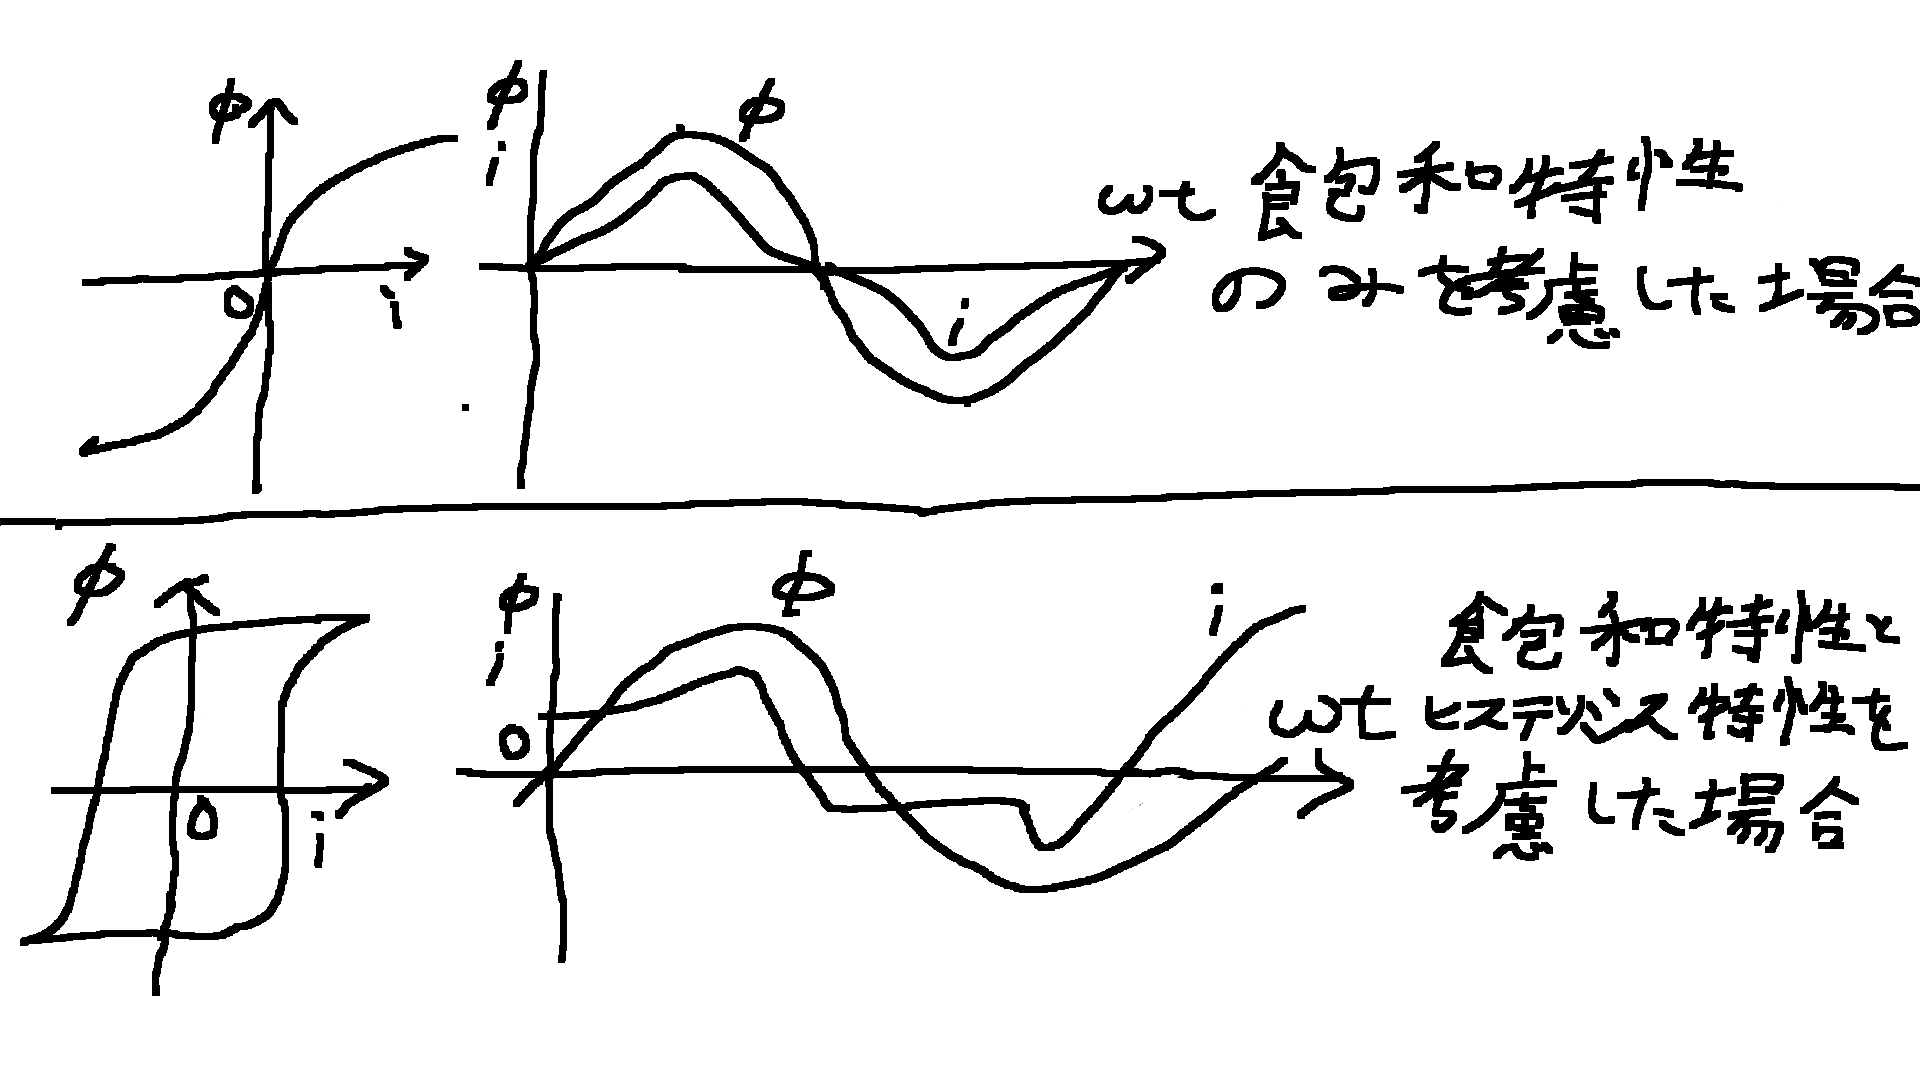 φ
i
0
φ
i
φ
i
ωt
飽和特性
のみを考慮した場合
φ
i
0
φ
i
0
φ
i
ωt
飽和特性と
ヒステリシス特性を
考慮した場合